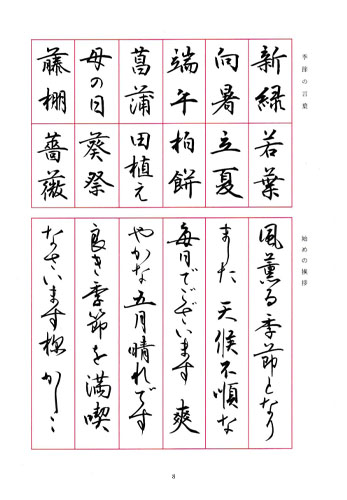 季節の言葉
新緑 若葉
向暑 立夏
端午 柏餅
菖蒲 田植え
母の日 葵祭
藤棚 薔薇
始めの挨拶
風薫る季節となり
ました 天候不順な
毎日でございます 爽
やかな五月晴れです
良き季節を満喫
なさいます様 かしこ
8